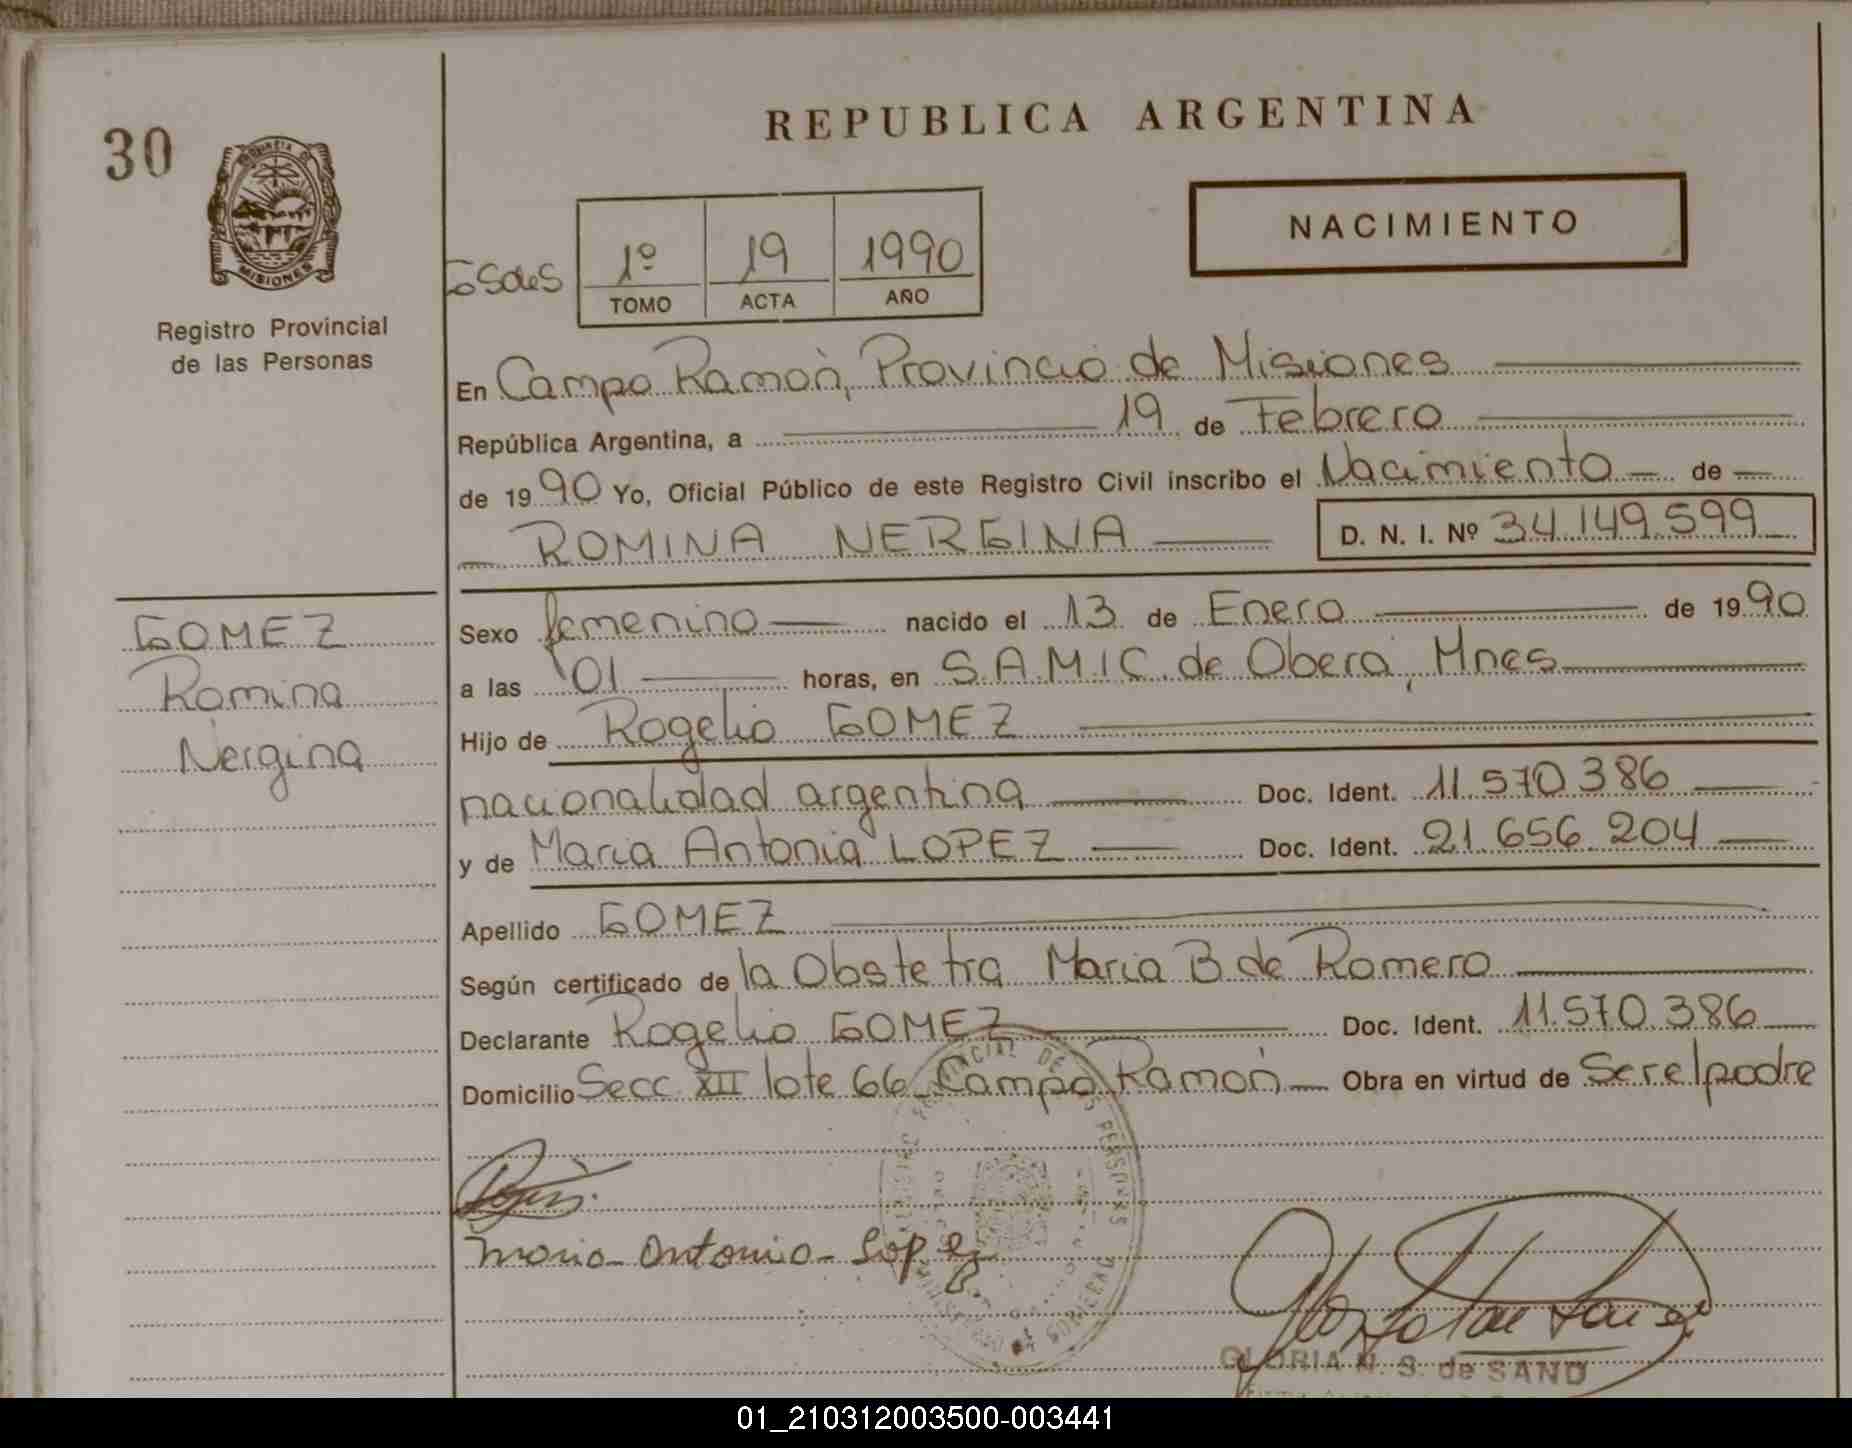 REPUBLICA ARGENTINA
30
PROVINCIA DE
MISIONES
Registro Provincial
de las Personas
NACIMIENTO
1º 19 1990
TOMO ACTA AÑO
En Campo Ramón, Provincia de Misiones
República Argentina, a 19 de Febrero
de 1990 Yo, Oficial Público de este Registro Civil inscribo el Nacimiento de
ROMINA NERGINA D. N. I. Nº 34.149.599
GOMEZ
Romina
Nergina
Sexo femenino nacido el 13 de Enero de 1990
a las 01 horas, en S.A.M.I.C. de Obera, Mnes
Hijo de Rogelio GOMEZ
nacionalidad argentina Doc. Ident. 11.570.386
y de Maria Antonia LOPEZ Doc. Ident. 21.656.204
Apellido GOMEZ
Según certificado de la Obstetra Maria B de Romero
Declarante Rogelio GOMEZ Doc. Ident. 11.570.386
Domicilio Secc XII lote 66 Campo Ramón Obra en virtud de Ser el padre
Maria Antonia Lópe
GLORIA N. S. de SAND
01_210312003500-003441